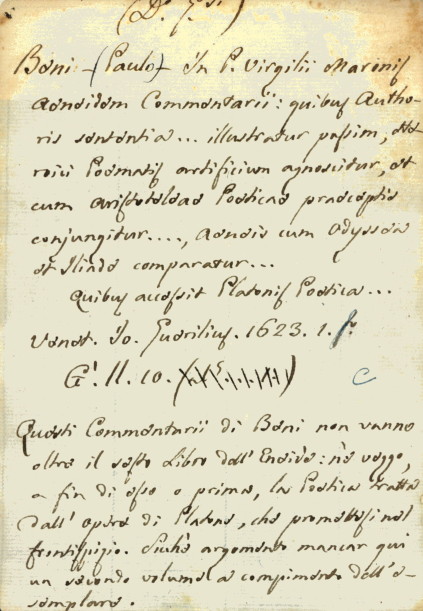 (D. 7.)
Beni (Paulo) In P. Virgilii Maronis
Aeneidem Commentarii: quibus Autho-
ris sententia... illustratur passim, He-
roici Poematis artificium agnoscitur, et
cum Aristoteleae Poeticae praeceptis
conjungitur...., Aeneis cum Odyssea
et Iliade comparatur...
Quibus accessit Platonis Poetica...
Venet. Io. Guerilius. 1623. 1. f.
G. 11. 10.
C
Questi Commentarii di Beni non vanno
oltre il sesto Libro dell' Eneide: nè veggo,
a fin di esse o prima, la Poetica tratta
dall' opere di Platone, che promettesi nel
frontispizio. Sicchè argomento mancar qui
un secondo volume a compimento dell' e-
semplare.